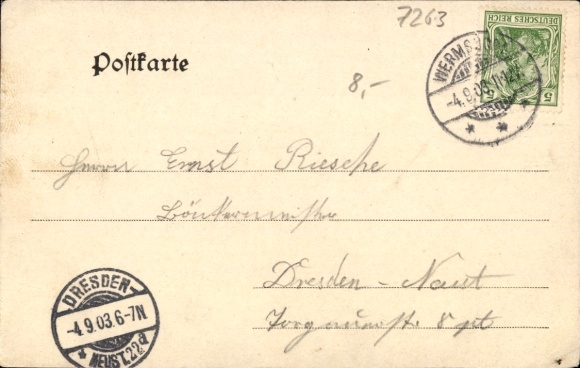 7263
Postkarte
8,-
DEUTSCHES REICH
5 5
WERMSD
-4.9.03
Herrn Ernst Riesche
Dresden - Neust
Torgauerstr. 8 pt
DRESDEN-
-4.9.03.6-7N
* NEUST.22d